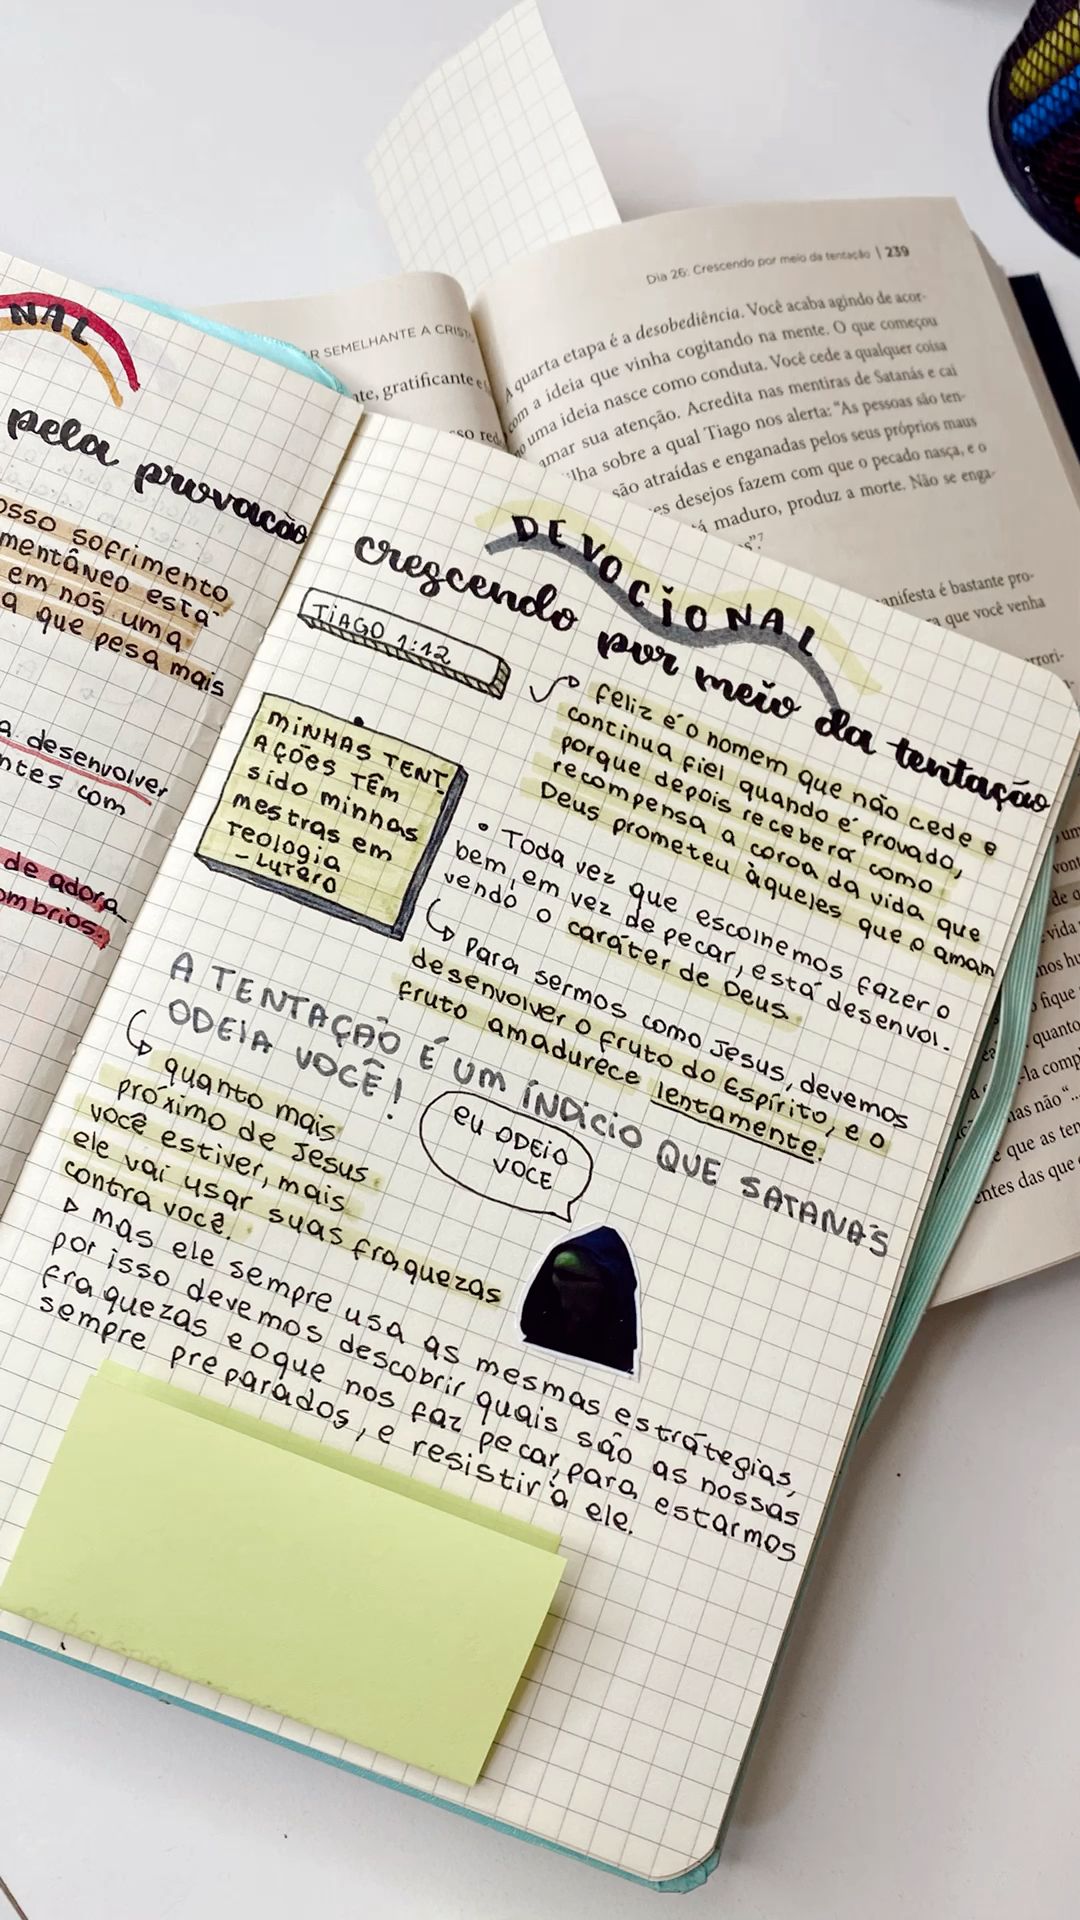 NAL
pela provação
osso sofrimento
mentâneo está
em nós uma
a que pesa mais
a desenvolver
ntes com
de adora
ombrios.
DEVOCIONAL
crescendo por meio da tentação
TIAGO 1:12
feliz é o homem que não cede e
continua fiel quando é provado,
porque depois receberá como
recompensa a coroa da vida que
Deus prometeu àqueles que o amam
MINHAS TENT
AÇÕES TÊM
sido minhas
mestras em
teologia
- LUTERO
• Toda vez que escolhemos fazer o
bem, em vez de pecar, está desenvol-
vendo o caráter de Deus.
↳ para sermos como Jesus, devemos
desenvolver o fruto do Espírito, e o
fruto amadurece lentamente.
A TENTAÇÃO É UM ÍNDICIO QUE SATANÁS
ODEIA VOCÊ!
↳ quanto mais
próximo de Jesus
você estiver, mais
ele vai usar suas fraquezas
contra você.
EU ODEIO
VOCE
▷ mas ele sempre usa as mesmas estrategias,
por isso devemos descobrir quais são as nossas
fraquezas e oque nos faz pecar, para estarmos
sempre preparados, e resistir à ele.
R SEMELHANTE A CRIST
te, gratificante e
Dia 26: Crescendo por meio da tentação | 239
A quarta etapa é a desobediência. Você acaba agindo de acor-
com a ideia que vinha cogitando na mente. O que começou
uma ideia nasce como conduta. Você cede a qualquer coisa
amar sua atenção. Acredita nas mentiras de Satanás e cai
ilha sobre a qual Tiago nos alerta: "As pessoas são ten-
são atraídas e enganadas pelos seus próprios maus
es desejos fazem com que o pecado nasça, e o
á maduro, produz a morte. Não se enga-
s".7
anifesta é bastante pro-
a que você venha
rrori-
um
vont
de q
vida
nos hu
fique
quanto
-la comp
nas não"
e que as ten
entes das que